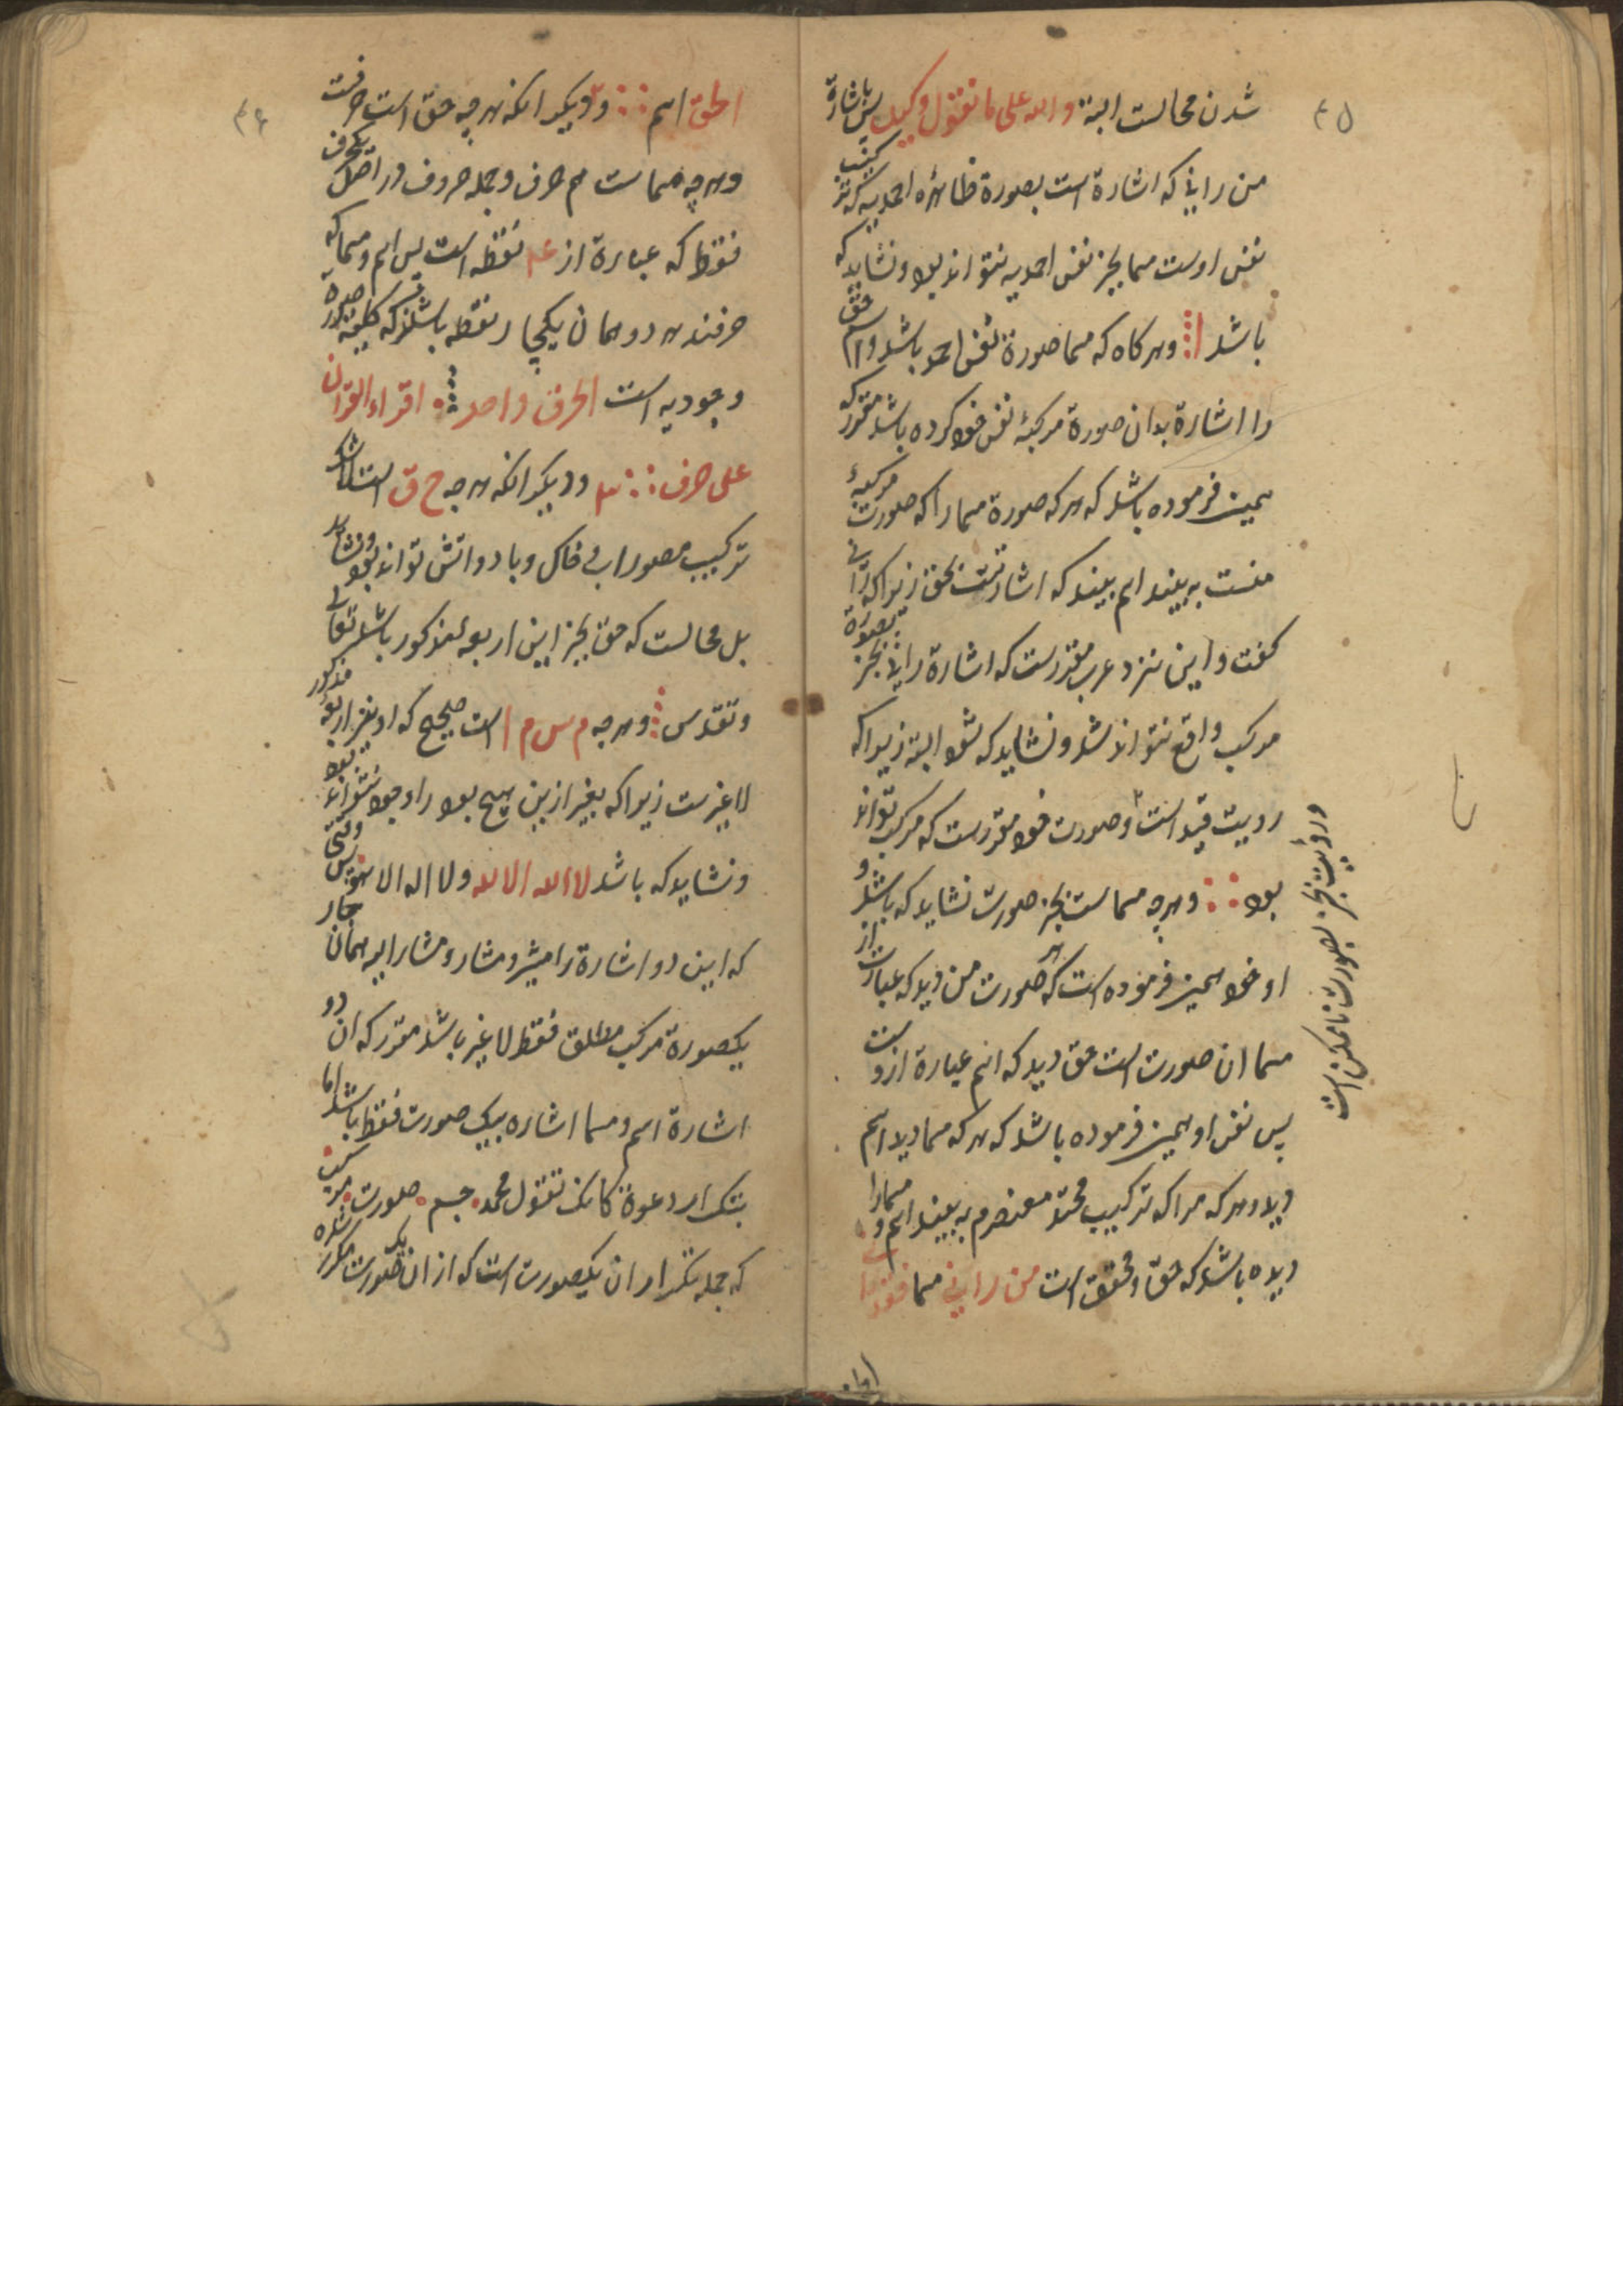 ۴۵
شدن محالست البتة والله علی ما نقول وکیل پس باشارة
من رانی که اشارة است بصورة ظاهره احمدیه که ترکیب
نفس اوست مسما بجز نفس احمدیه نتواند بود ونشاید که
باشد ا وهر کاه که مسما صورة نفس احمد باشد واسم حق
را اشارة بدان صورة مرکبهٔ نفس خود کرده باشد مقرر که
همین فرموده باشد که هر که صورة مسما را که صورت مرکبهٔ
منست به بیند اسم بیند که اشارتست بحق زیرا که رانی
کفت واین نزد عرب مقررست که اشارة رانی بجز بصورة
مرکب واقع نتواند شد ونشاید که شود البتة زیرا که
رویت قید است وصورت خود مقررست که مرکب تواند
بود وهر چه مسماست بجز صورت نشاید که باشد و
او خود همین فرموده است که هر صورت من دید که عبارت از
مسما ان صورت است حق دید که اسم عبارة ازوست
پس نفس او همین فرموده باشد که هر که مسما دید اسم
دید وهر که مرا که ترکیب محتد معنصرم به بیند اسم ومسمارا
دیده باشد که حق ومحقق است من رانی مسما فقد را
ورویت بجز بصورت ناممکن است
۴۶
الحق اسم ودیکر انکه هر چه حق است حرفست
وهر چه مسماست هم حرف وجمله حروف در اصل یکحرف
فقط که عبارة از نقطه است پس اسم ومسما که
حرفند هر دو همان یکچهار نقطه باشند که کلیه صورة
وجودیه است الحرف واحد اقراء القران
علی حرف ودیکر انکه هر چه ح ق است
ترکیب مصور ابی خاک وباد واتش تواند بود ونشاید
بل محالست که حق بجز این اربعهٔ مذکور باشد تعالی
وتقدس وهر چه م س م ا است صحیح که او بغیر اربعهٔ مذکور
لا غیرست زیرا که بغیر ازین هیچ بود را وجود نتواند بود
ونشاید که باشد لا الله الا الله ولا اله الا هو پس وقتی
که این دو اشارة را مشیر ومشار ومشار الیه همان چهار
یکصورة مرکب مطلق فقط لا غیر باشد مقرر که ان دو
اشارة اسم ومسما اشاره بیک صورت فقط باشد اما
بتکرار دعوة کانک تقول محمد جسم صورت مرکب
که جمله تکرار ان یکصورت است که از ان یک صورت مکرر شده